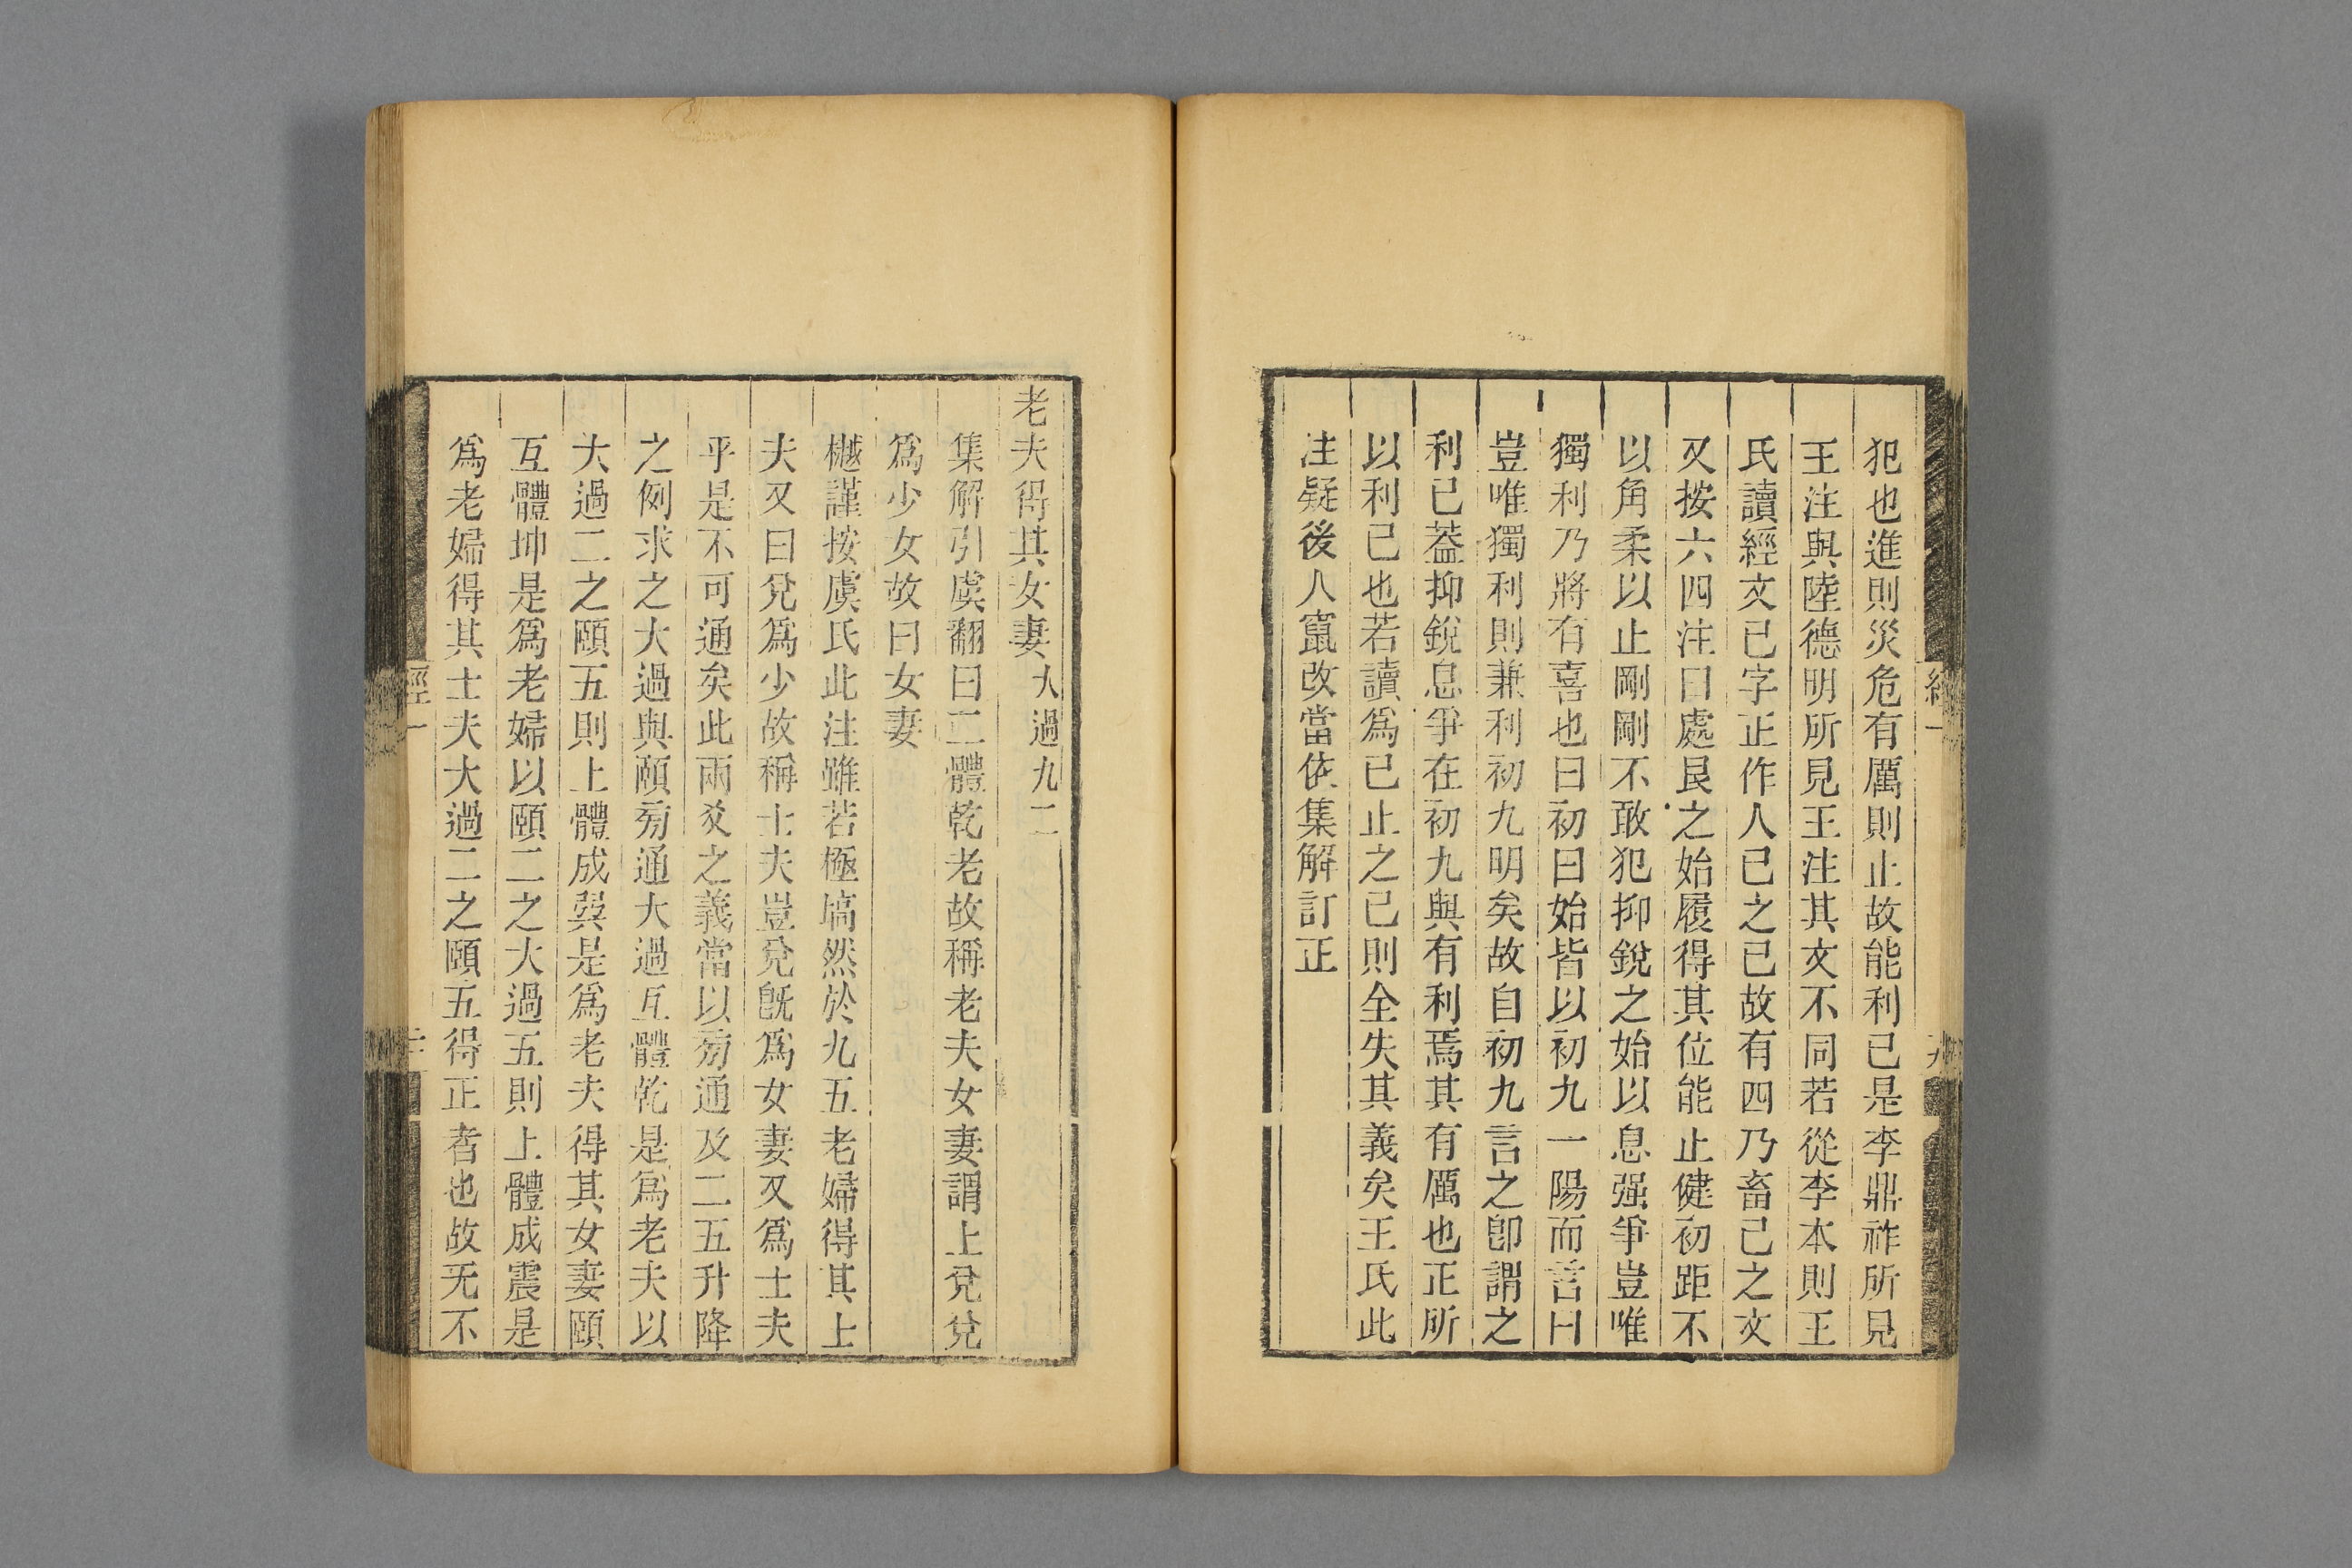 犯也進則災危有厲則止故能利已是李鼎祚所見
王注與陸德明所見王注其文不同若從李本則王
氏讀經文已字正作人已之已故有四乃畜己之文
又按六四注曰處艮之始履得其位能止健初距不
以角柔以止剛剛不敢犯抑銳之始以息强爭豈唯
獨利乃將有喜也曰初曰始皆以初九一陽而言曰
豈唯獨利則兼利初九明矣故自初九言之卽謂之
利已葢抑銳息爭在初九與有利焉其有厲也正所
以利已也若讀爲已止之已則全失其義矣王氏此
注疑後人竄改當依集解訂正
老夫得其女妻大過九二
集解引虞翻曰二體乾老故稱老夫女妻謂上兌兌
爲少女故曰女妻
樾謹按虞氏此注雖若極塙然於九五老婦得其士
夫又曰兌爲少故稱士夫豈兌旣爲女妻又爲士夫
乎是不可通矣此兩爻之義當以旁通及二五升降
之例求之大過與頤旁通大過互體乾是爲老夫以
大過二之頤五則上體成巽是爲老夫得其女妻頤
互體坤是爲老婦以頤二之大過五則上體成震是
爲老婦得其士夫大過二之頤五得正者也故无不
經一